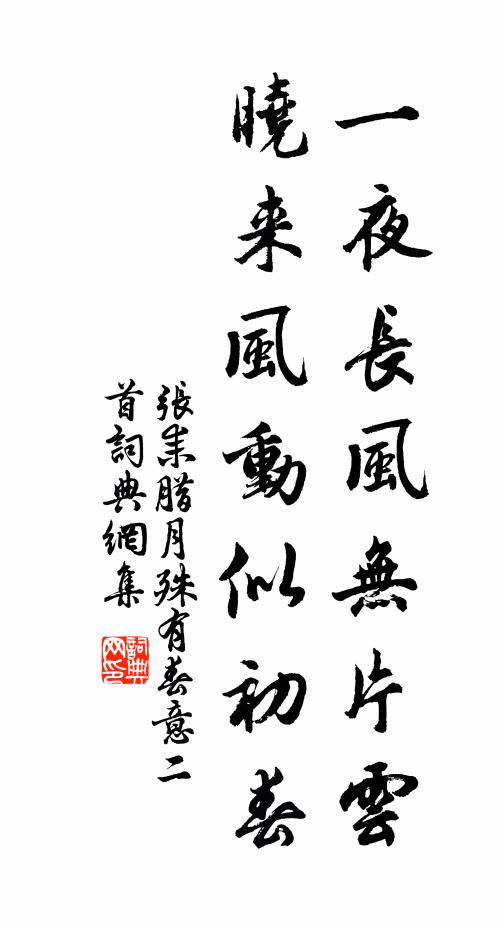 一夜長風無片雲
曉来風動似初春
張耒臘月殊有春意二
首詞典網集
詞典
网印